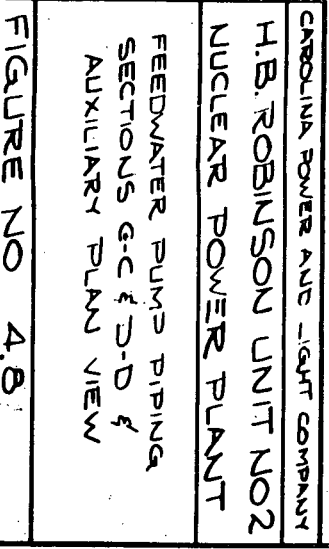 CAROLINA POWER AND LIGHT COMPANY
H.B. ROBINSON UNIT NO2
NUCLEAR POWER PLANT
FEEDWATER PUMP PIPING
SECTIONS C-C & D-D &
AUXILIARY PLAN VIEW
FIGURE NO 4.8